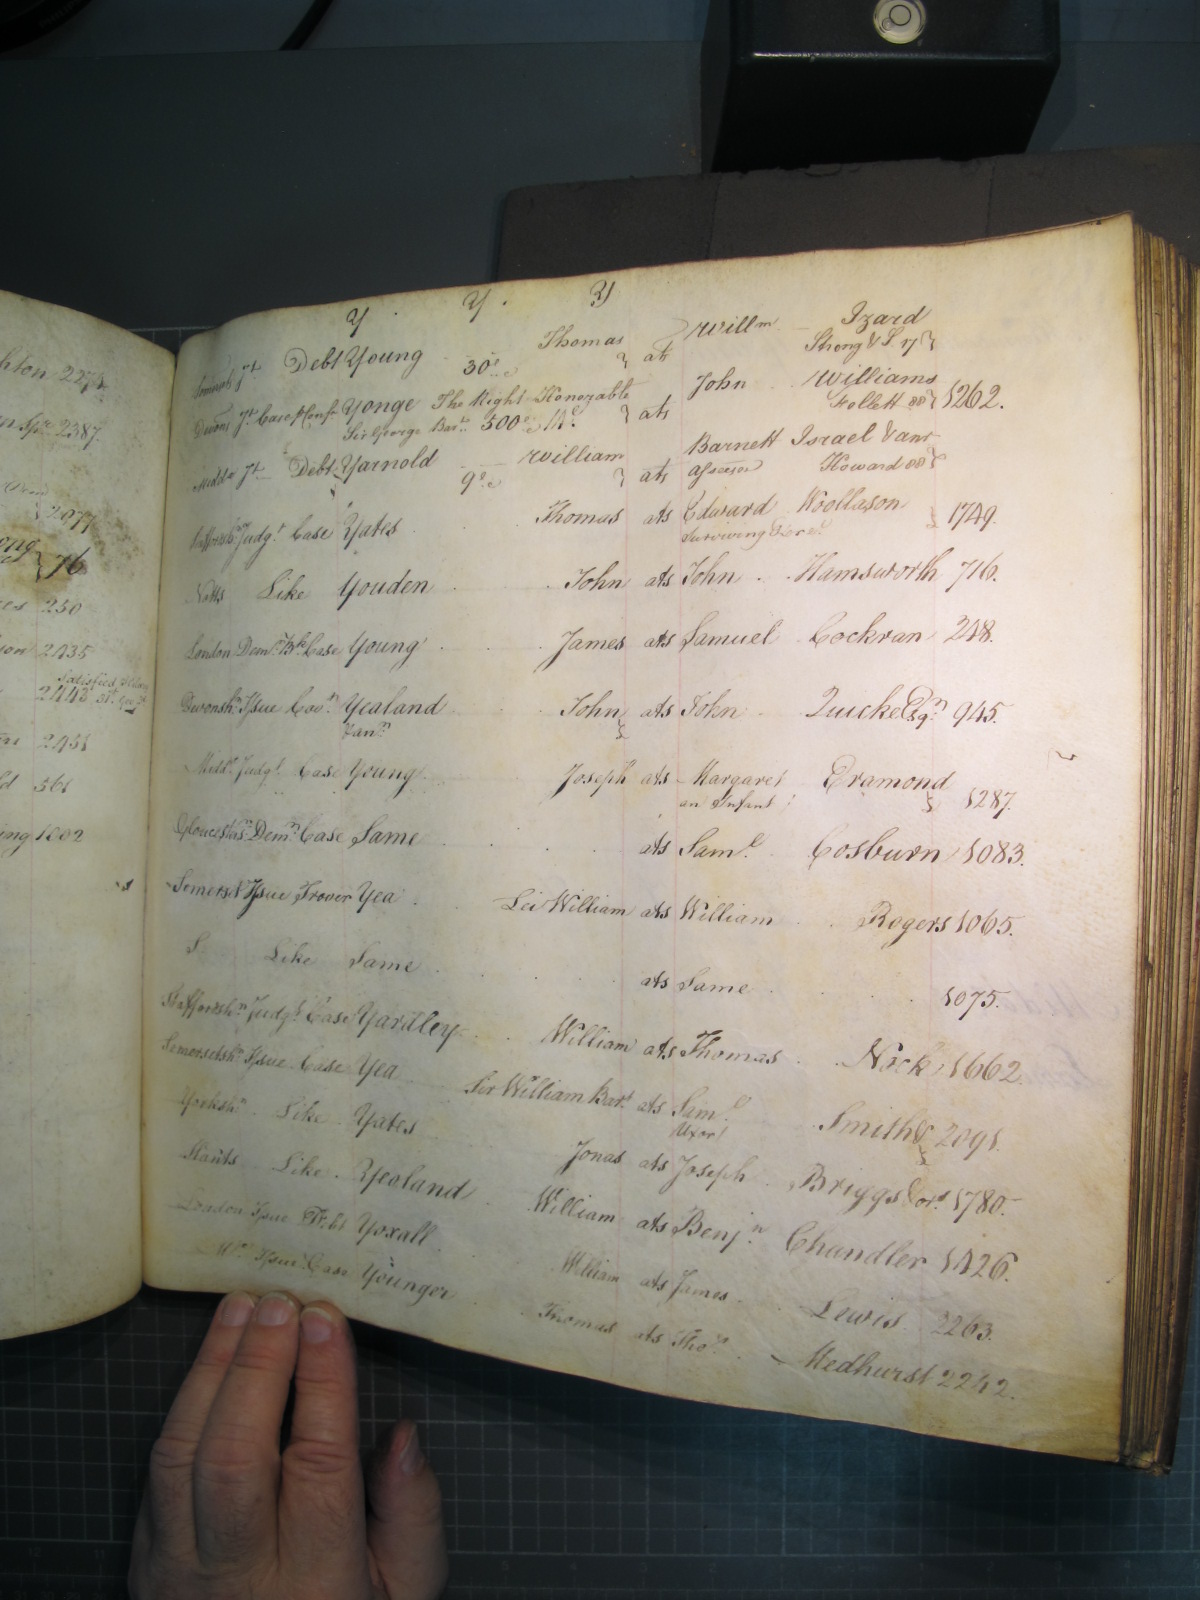 Y . Y . Y
Debt Young Thomas ats Will^m Izard
30£ Strong & S 17
Devons J^t Case & Conf^n Yonge The Right Honorable ats John Williams 1262.
Sir George Bar^t 500£ Follett 88
Midd^x J^t Debt Yarnold William ats Barnett Israel & an^r
9£ assignees Howard 88
Judg^t Case Yates Thomas ats Edward Woollason 1749.
surviving
Notts Like Youden John ats John Hamsworth 716.
London Dem^r Case Young James ats Samuel Cockran 248.
Devonsh^r Issue Cov^t Yealand John ats John Quicke Esq^r 945.
Midd^x Judg^t Case Young Joseph ats Margaret Dramond
an Infant 1287.
Gloucest^rs Dem^r Case Same ats Sam^l Cosburn 1083.
Somers^t Issue Trover Yea Sir William ats William Rogers 1065.
S Like Same ats Same 1075.
Staffordsh^r Judg^t Case Yardley William ats Thomas Nock 1662.
Somersetsh^r Issue Case Yea Sir William Bar^t ats Sam^l Smith & 2091.
Uxor
Yorksh^r Like Yates Jonas ats Joseph Briggs & or^s 1780.
Hants Like Yealand William ats Benj^n Chandler 1426.
London Issue Debt Yoxall William ats James Lewis 2263.
Issue Case Younger Thomas ats Tho^s Medhurst 2242.
2274
2387.
2077
76
250
2435
satisfied
2442
2451
561
1002